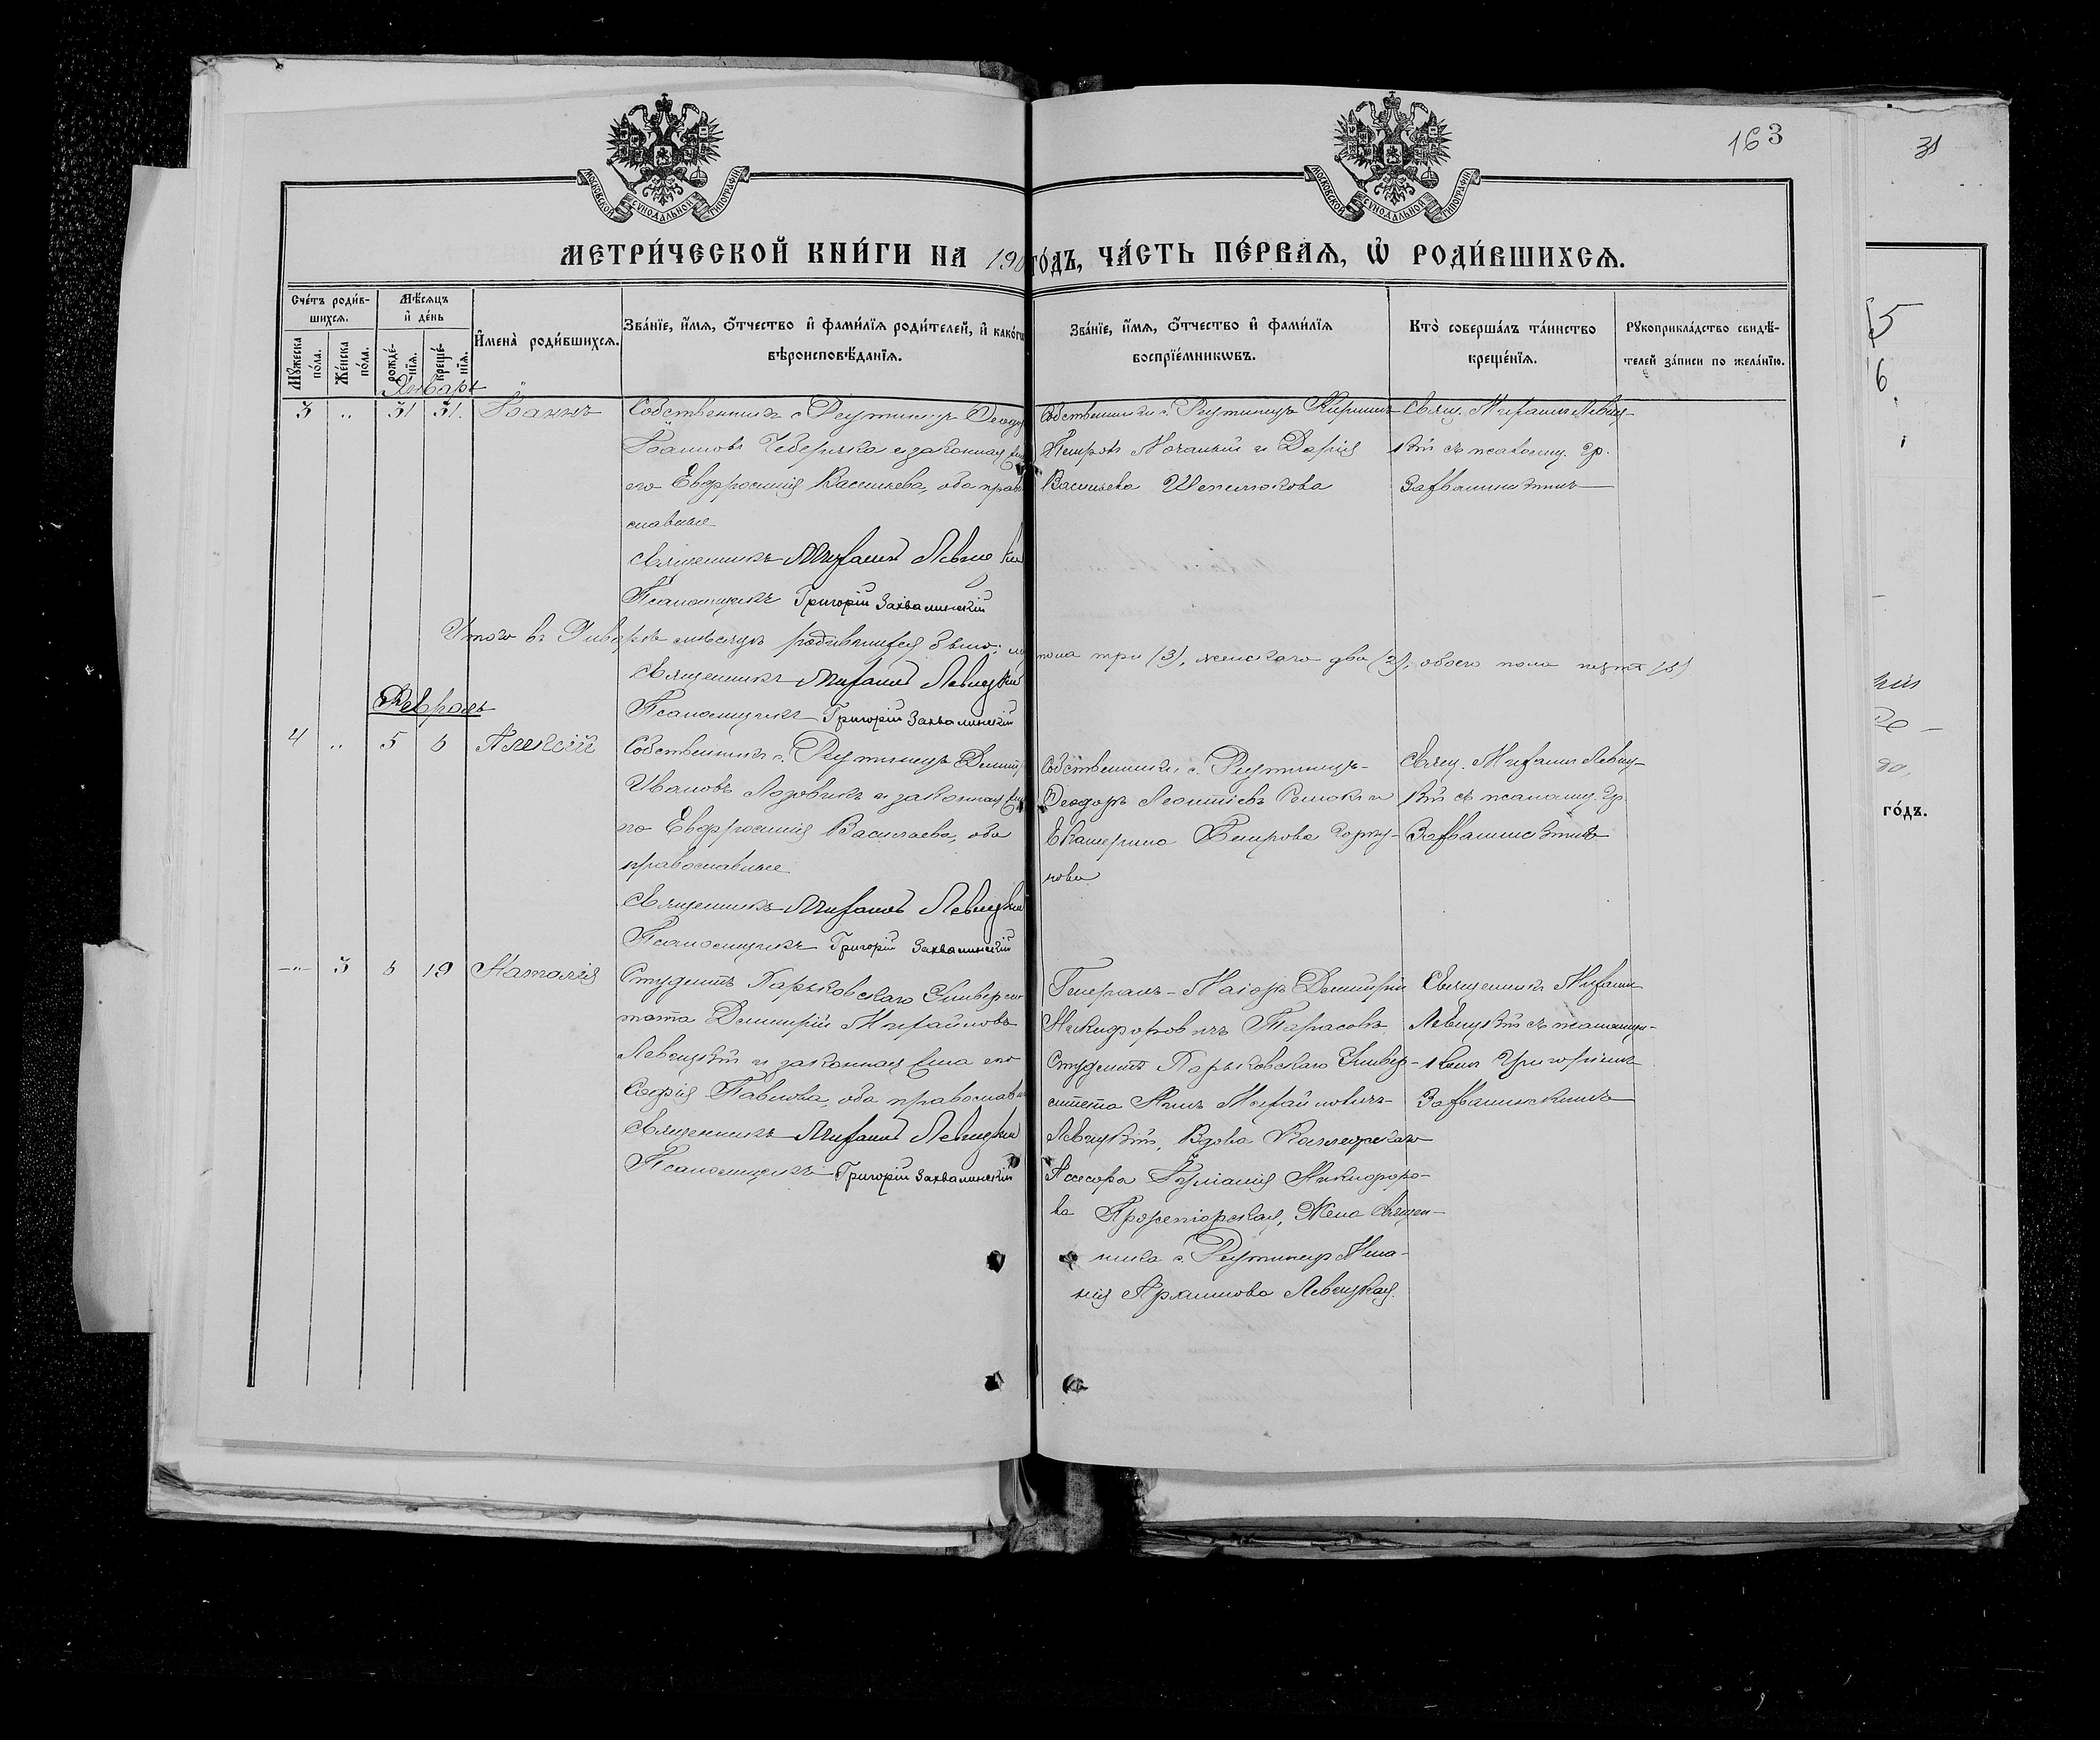 МОСКОВСКОЙ СУНОДАЛЬНОЙ ТИПОГРАФІИ
МОСКОВСКОЙ СУНОДАЛЬНОЙ ТИПОГРАФІИ
163
31
МЕТРИ́ЧЕСКОЙ КНИ́ГИ НА 190 го́дъ, ЧА́СТЬ ПЕ́РВАѦ, Ѡ҆ РОДИ́ВШИХСѦ.
Сче́тъ роди́в-
шихсѧ.
Мѣ́сяцъ
и҆ де́нь
И҆мена̀ роди́вшихсѧ.
Зва́нїе, и҆́мѧ, ѻ҆́тчество и҆ фами́лїѧ роди́телей, и҆ како́гѡ
вѣроисповѣ́данїѧ.
Зва́нїе, и҆́мѧ, ѻ҆́тчество и҆ фами́лїѧ
воспрїе́мникѡвъ.
Кто̀ соверша́лъ та́инство
креще́нїѧ.
Рꙋкоприкла́дство свидѣ́-
телей за́писи по жела́нїю.
Мꙋ́жеска по́ла.
Же́нска по́ла.
рожде́-нїѧ.
креще́-нїѧ.
Январь
3 " 31 31. Іоаннъ
Собственникъ с. Реутинецъ Ѳеодо
Іоанновъ Чеберяка и законная
его Евфросинія Васильева, оба прав
славные
Священникъ Михаилъ Левицкій
Псаломщикъ Григорій Захвалинскій
Собственники с. Реутинецъ
Петровъ и Дарія
Васильева
Свящ. Михаилъ Левиц-
кій съ псаломщ. Гр.
Захвалинскимъ
Итого въ Январѣ мѣсяцѣ родившихся было: м
пола три (3), женскаго два (2), обоего пола пять (5)
Священникъ Михаилъ Левицкій
Псаломщикъ Григорій Захвалинскій
Февраль
4 " 5 6 Алексій
Собственникъ с. Реутинецъ Димит
Ивановъ Лозовикъ и законная
его Евфросинія Васильева, оба
православные
Священникъ Михаилъ Левицкій
Псаломщикъ Григорій Захвалинскій
Собственники с. Реутинецъ
Ѳеодоръ Леонтіевъ и
Екатерина Петрова
нова
Свящ. Михаилъ Левиц-
кій съ псаломщ. Гр.
Захвалинскимъ
-"- 3 6 19 Наталія
Студентъ Харьковскаго Универси
тета Димитрій Михайловъ
Левицкій и законная жена его
Софія Павлова, оба православн
Священникъ Михаилъ Левицкій
Псаломщикъ Григорій Захвалинскій
Генералъ-Маіоръ Димитрій
Никифоровичъ Тарасовъ,
Студентъ Харьковскаго Универ-
ситета Михайловичъ
Левицкій, Вдова Коллежскаго
Асесора Іуліанія Никифоро-
ва Жена Священ-
ника с. Реутинецъ
нія Левицкая.
Священникъ Михаилъ
Левицкій съ псаломщи-
комъ Григоріемъ
Захвалинскимъ
5
6
го́дъ.